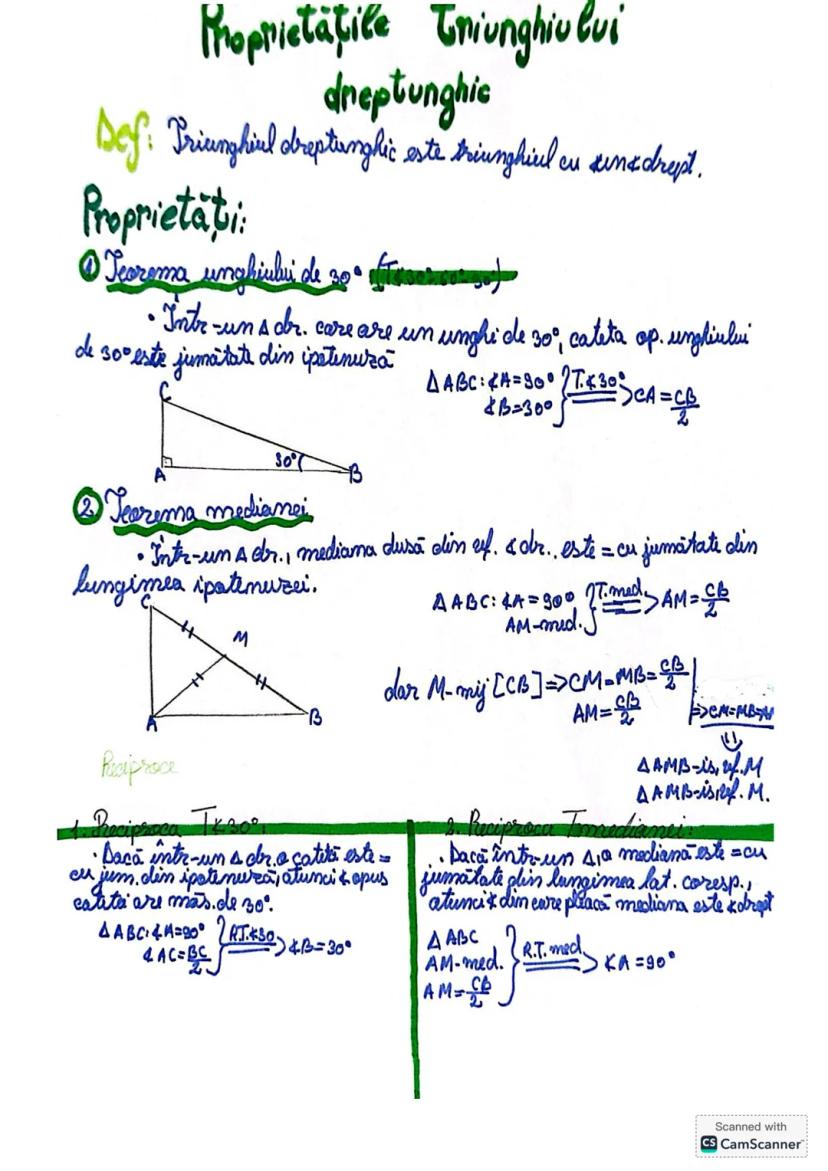 Proprietățile Triunghiului
dreptunghic
Def: Triunghiul dreptunghic este triunghiul cu un ∢ drept.
Proprietăți:
① Teorema unghiului de 30°
• Într-un Δ dr. care are un unghi de 30°, cateta op. unghiului
de 30° este jumătate din ipotenuză
Δ ABC: ∢A=90°
∢B=30° } T.∢30° => CA = CB/2
C
A
30°
B
② Teorema medianei
• Într-un Δ dr., mediana dusă din vf. ∢ dr., este = cu jumătate din
lungimea ipotenuzei.
Δ ABC: ∢A = 90°
AM-med. } T.med. => AM = CB/2
C
M
A
B
dar M-mij [CB] => CM=MB= CB/2
AM= CB/2
=> CM=MB=
Δ AMB-is, vf. M
Δ AMB-is, vf. M.
Reciproce
1. Reciproca T∢30°:
• Dacă într-un Δ dr. o catetă este =
cu jum. din ipotenuză, atunci ∢ opus
catetei are măs. de 30°.
Δ ABC: ∢A=90°
∢ AC= BC/2 } R.T.∢30 => ∢B=30°
2. Reciproca T.medianei:
• Dacă într-un Δ, o mediană este = cu
jumătate din lungimea lat. coresp.,
atunci ∢ din care pleacă mediana este ∢ drept
Δ ABC
AM-med.
AM= CB/2 } R.T.med. => ∢A=90°
Scanned with
CS CamScanner